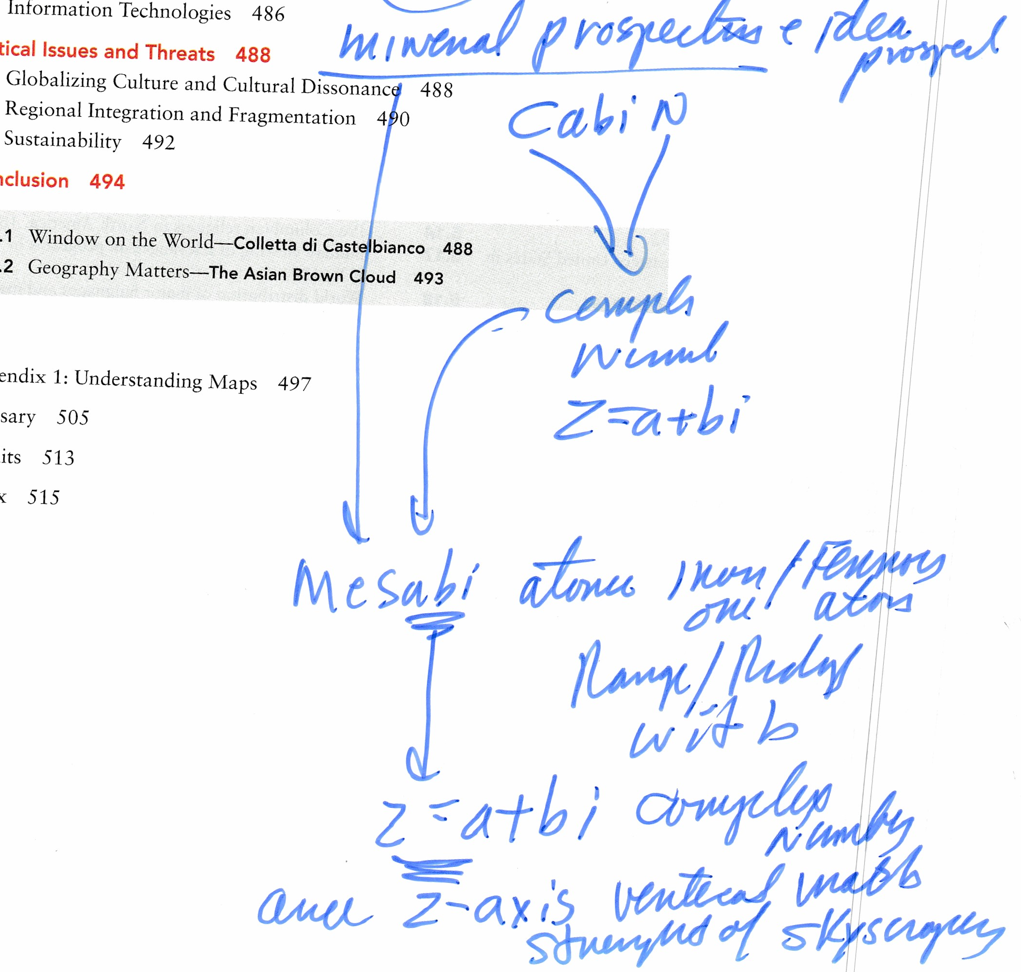 Information Technologies 486
tical Issues and Threats 488
Globalizing Culture and Cultural Dissonance 488
Regional Integration and Fragmentation 490
Sustainability 492
nclusion 494
.1 Window on the World—Colletta di Castelbianco 488
.2 Geography Matters—The Asian Brown Cloud 493
endix 1: Understanding Maps 497
sary 505
its 513
x 515
mineral prospecting e idea
prospect
Cabi N
Z=a+bi
Mesabi iron/Ferrous
one atoms
Range/
with b
z=a+bi complex
number
z-axis vertical
strength of skyscrapers